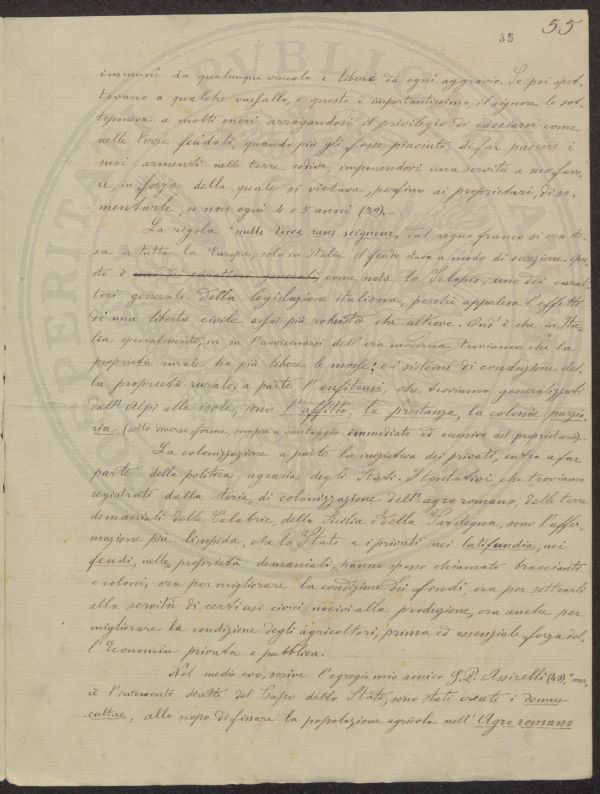 35
55
immuni da qualunque vincolo e libere da ogni aggravio. Se poi spet-
tavano a qualche vassallo, e questo è importantissimo, il signore le sot-
toponeva a molti oneri arrogandosi il privilegio di cacciarvi come
nelle terre feudali, quando più gli fosse piaciuto, di far pascere i
suoi armenti nelle terre sodive, imponendovi una servitù a suo favo-
re, in forza della quale si vietava, perfino ai proprietari, di se-
mentarle, se non ogni 4 o 5 anni (39).-
La regola "nulle terre sans seigneur" dal regno franco si era ste-
sa a tutta la Europa, solo in Italia il feudo stava a modo di eccezione. Que-
sto è uno dei caratteri generali come nota lo Sclopis, uno dei carat-
teri generali della legislazione italiana, perchè appaleso l'effetto
di una libertà civile assai più robusta che altrove. Ond'è che in Ita-
lia specialmente, in su l'avvicinarsi dell'era moderna troviamo che la
proprietà rurale ha più libere le mosse; e i sistemi di conduzione del-
la proprietà rurale, a parte l'enfiteusi, che troviamo generalizzati
dall'Alpi alle isole, sono l'affitto, la prestanza, la colonia parzia-
ria. (sotto diverse forme, sempre a vantaggio immediato ed eccessivo del proprietario).-
La colonizzazione, a parte la iniziativa dei privati, entra a far
parte della politica agraria degli Stati. I tentativi che troviamo
registrati dalla storia, di colonizzazione dell'agro romano, delle terre
demaniali delle Calabrie, della Sicilia e della Sardegna, sono l'affer-
mazione più limpida, che lo Stato e i privati nei latifundia, nei
feudi, nelle proprietà demaniali, hanno spesso chiamato braccianti
e coloni, ora per migliorare la condizione dei fondi, ora per sottrarli
alla servitù di certi usi civici nocivi alla produzione, ora anche per
migliorare la condizione degli agricoltori, prima ed essenziale forza del-
l'Economia privata e pubblica.
Nel medio evo, scrive l'egregio mio amico G. P. Assirelli (40), "mer-
cè l'intervento diretto del Capo dello Stato, sono stati creati i domus-
cultae, allo scopo di fissare la popolazione agricola nell'Agro romano